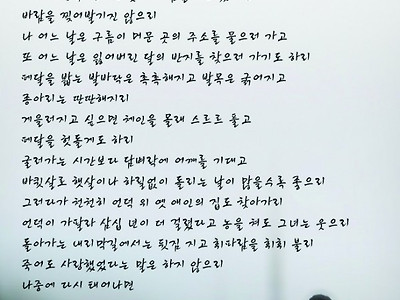 바람을 찢어발기진 않으리
나 어느 날은 구름이 머문 곳의 주소를 물으러 가고
또 어느 날은 잃어버린 달의 반지를 찾으러 가기도 하리
페달을 밟는 발바닥은 촉촉해지고 발목은 굵어지고
종아리는 딴딴해지리
게을러지고 싶으면 체인을 몰래 스르르 풀고
페달을 헛돌게도 하리
굴러가는 시간보다 담벼락에 어깨를 기대고
바큇살로 햇살이나 하릴없이 돌리는 날이 많을수록 좋으리
그러다가 천천히 언덕 위 옛 애인의 집도 찾아가리
언덕이 가팔라 삼십 년이 더 걸렸다고 농을 쳐도 그녀는 웃으리
돌아가는 내리막길에서는 뒷짐 지고 휘파람을 휘휘 불리
죽어도 사랑했었다는 말은 하지 않으리
나중에 다시 태어나면